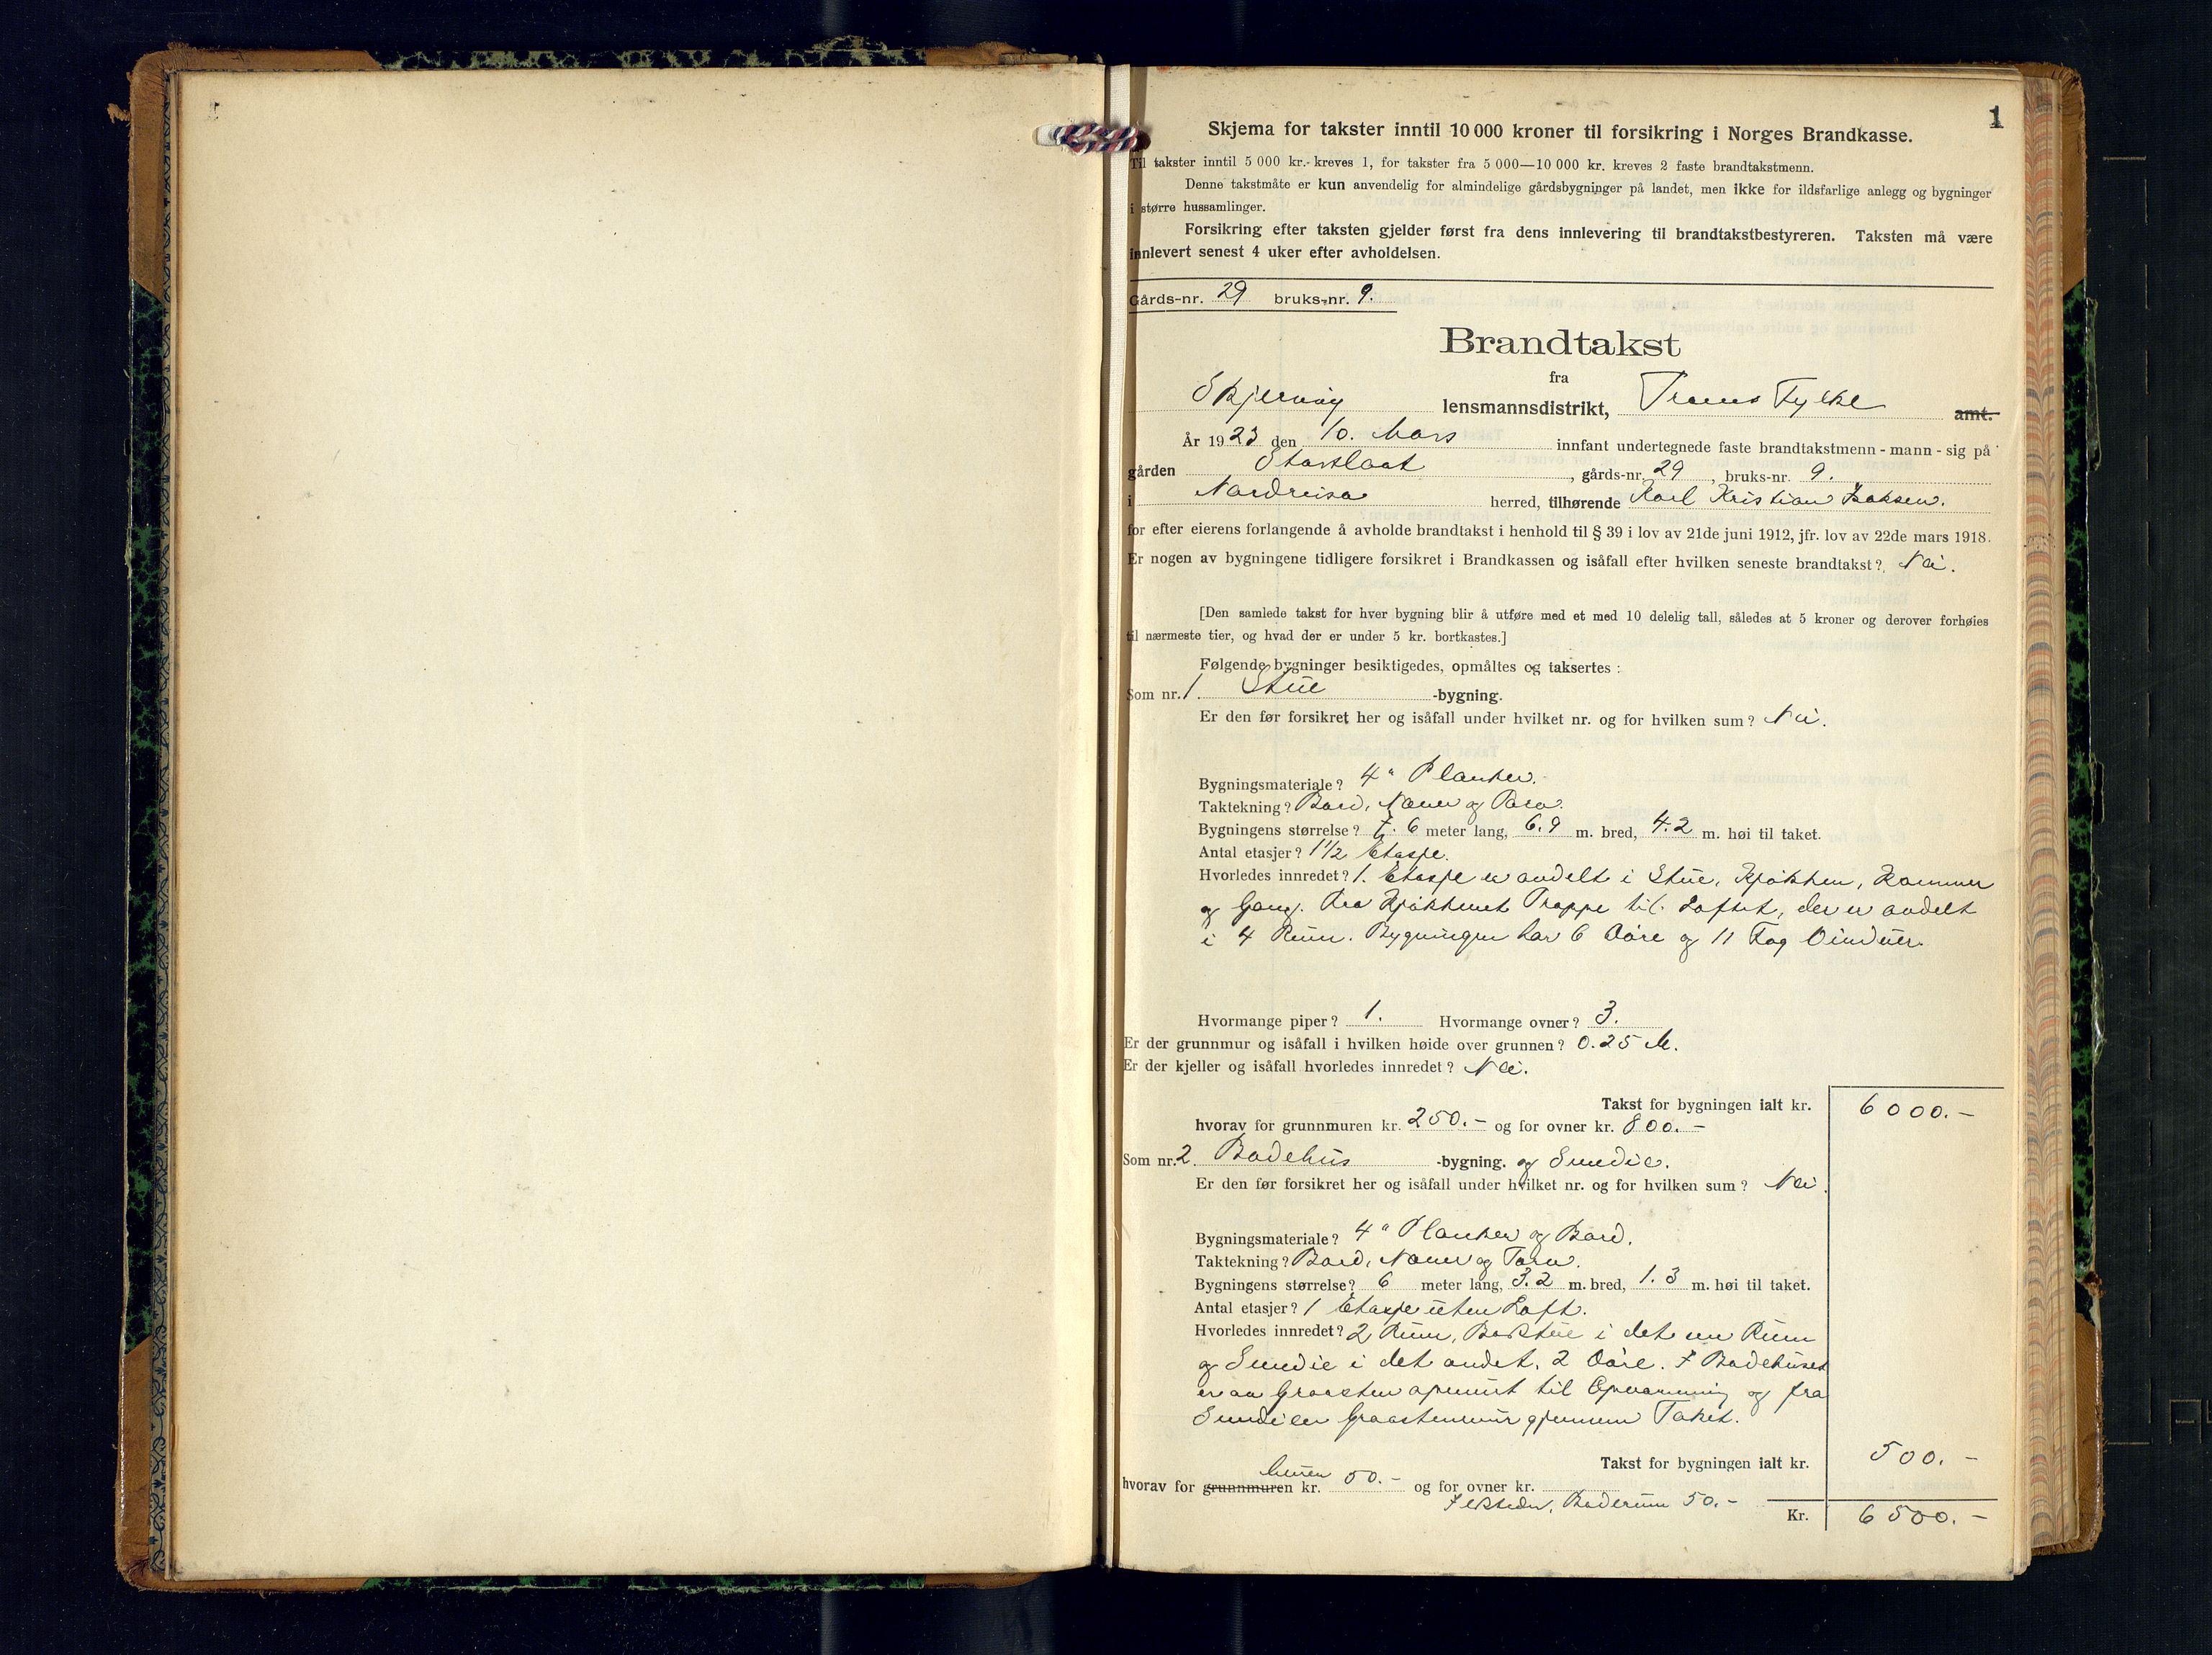 1
Skjema for takster inntil 10 000 kroner til forsikring i Norges Brandkasse.
Til takster inntil 5 000 kr. kreves 1, for takster fra 5 000—10 000 kr. kreves 2 faste brandtakstmenn.
Denne takstmåte er kun anvendelig for almindelige gårdsbygninger på landet, men ikke for ildsfarlige anlegg og bygninger
i større hussamlinger.
Forsikring efter taksten gjelder først fra dens innlevering til brandtakstbestyreren. Taksten må være
innlevert senest 4 uker efter avholdelsen.
Gårds-nr. 29 bruks-nr. 9.
Brandtakst
fra
Skjervøy lensmannsdistrikt, Troms Fylke amt.
År 1923 den 10. Mars innfant undertegnede faste brandtakstmenn - mann - sig på
gården Storslaat, gårds-nr. 29, bruks-nr. 9.
i Nordreisa herred, tilhørende Karl Kristian Isaksen.
for efter eierens forlangende å avholde brandtakst i henhold til § 39 i lov av 21de juni 1912, jfr. lov av 22de mars 1918.
Er nogen av bygningene tidligere forsikret i Brandkassen og isåfall efter hvilken seneste brandtakst? Nei.
[Den samlede takst for hver bygning blir å utføre med et med 10 delelig tall, således at 5 kroner og derover forhøies
til nærmeste tier, og hvad der er under 5 kr. bortkastes.]
Følgende bygninger besiktigedes, opmåltes og taksertes:
Som nr. 1. Stue -bygning.
Er den før forsikret her og isåfall under hvilket nr. og for hvilken sum? Nei.
Bygningsmateriale? 4" Planker.
Taktekning? Bord, Næver og Torv.
Bygningens størrelse? 7.6 meter lang, 6.9 m. bred, 4.2 m. høi til taket.
Antal etasjer? 1½ Etasje.
Hvorledes innredet? 1. Etasje er avdelt i Stue, Kjøkken, Kammer
og Gang. Fra Kjøkkenet Trappe til Loftet, der er avdelt
i 4 Rum. Bygningen har 6 Døre og 11 Fag Vinduer.
Hvormange piper? 1. Hvormange ovner? 3.
Er der grunnmur og isåfall i hvilken høide over grunnen? 0.25 M.
Er der kjeller og isåfall hvorledes innredet? Nei.
Takst for bygningen ialt kr. 6000.-
hvorav for grunnmuren kr. 250.- og for ovner kr. 800.-
Som nr. 2. Badehus -bygning. og Smedie.
Er den før forsikret her og isåfall under hvilket nr. og for hvilken sum? Nei.
Bygningsmateriale? 4" Planker og Bord.
Taktekning? Bord, Næver og Torv.
Bygningens størrelse? 6 meter lang, 3.2 m. bred, 1.3 m. høi til taket.
Antal etasjer? 1 Etasje uten Loft.
Hvorledes innredet? 2 Rum, Badstue i det ene Rum
og Smedie i det andet. 2 Døre. I Badehuset
er en Graasten til Opvarmning og fra
Smedien Graastenmur gjennem Taket.
Takst for bygningen ialt kr. 500.-
hvorav for grunnmuren Muren kr. 50.- og for ovner kr.
Baderum 50.-
Kr. 6500.-